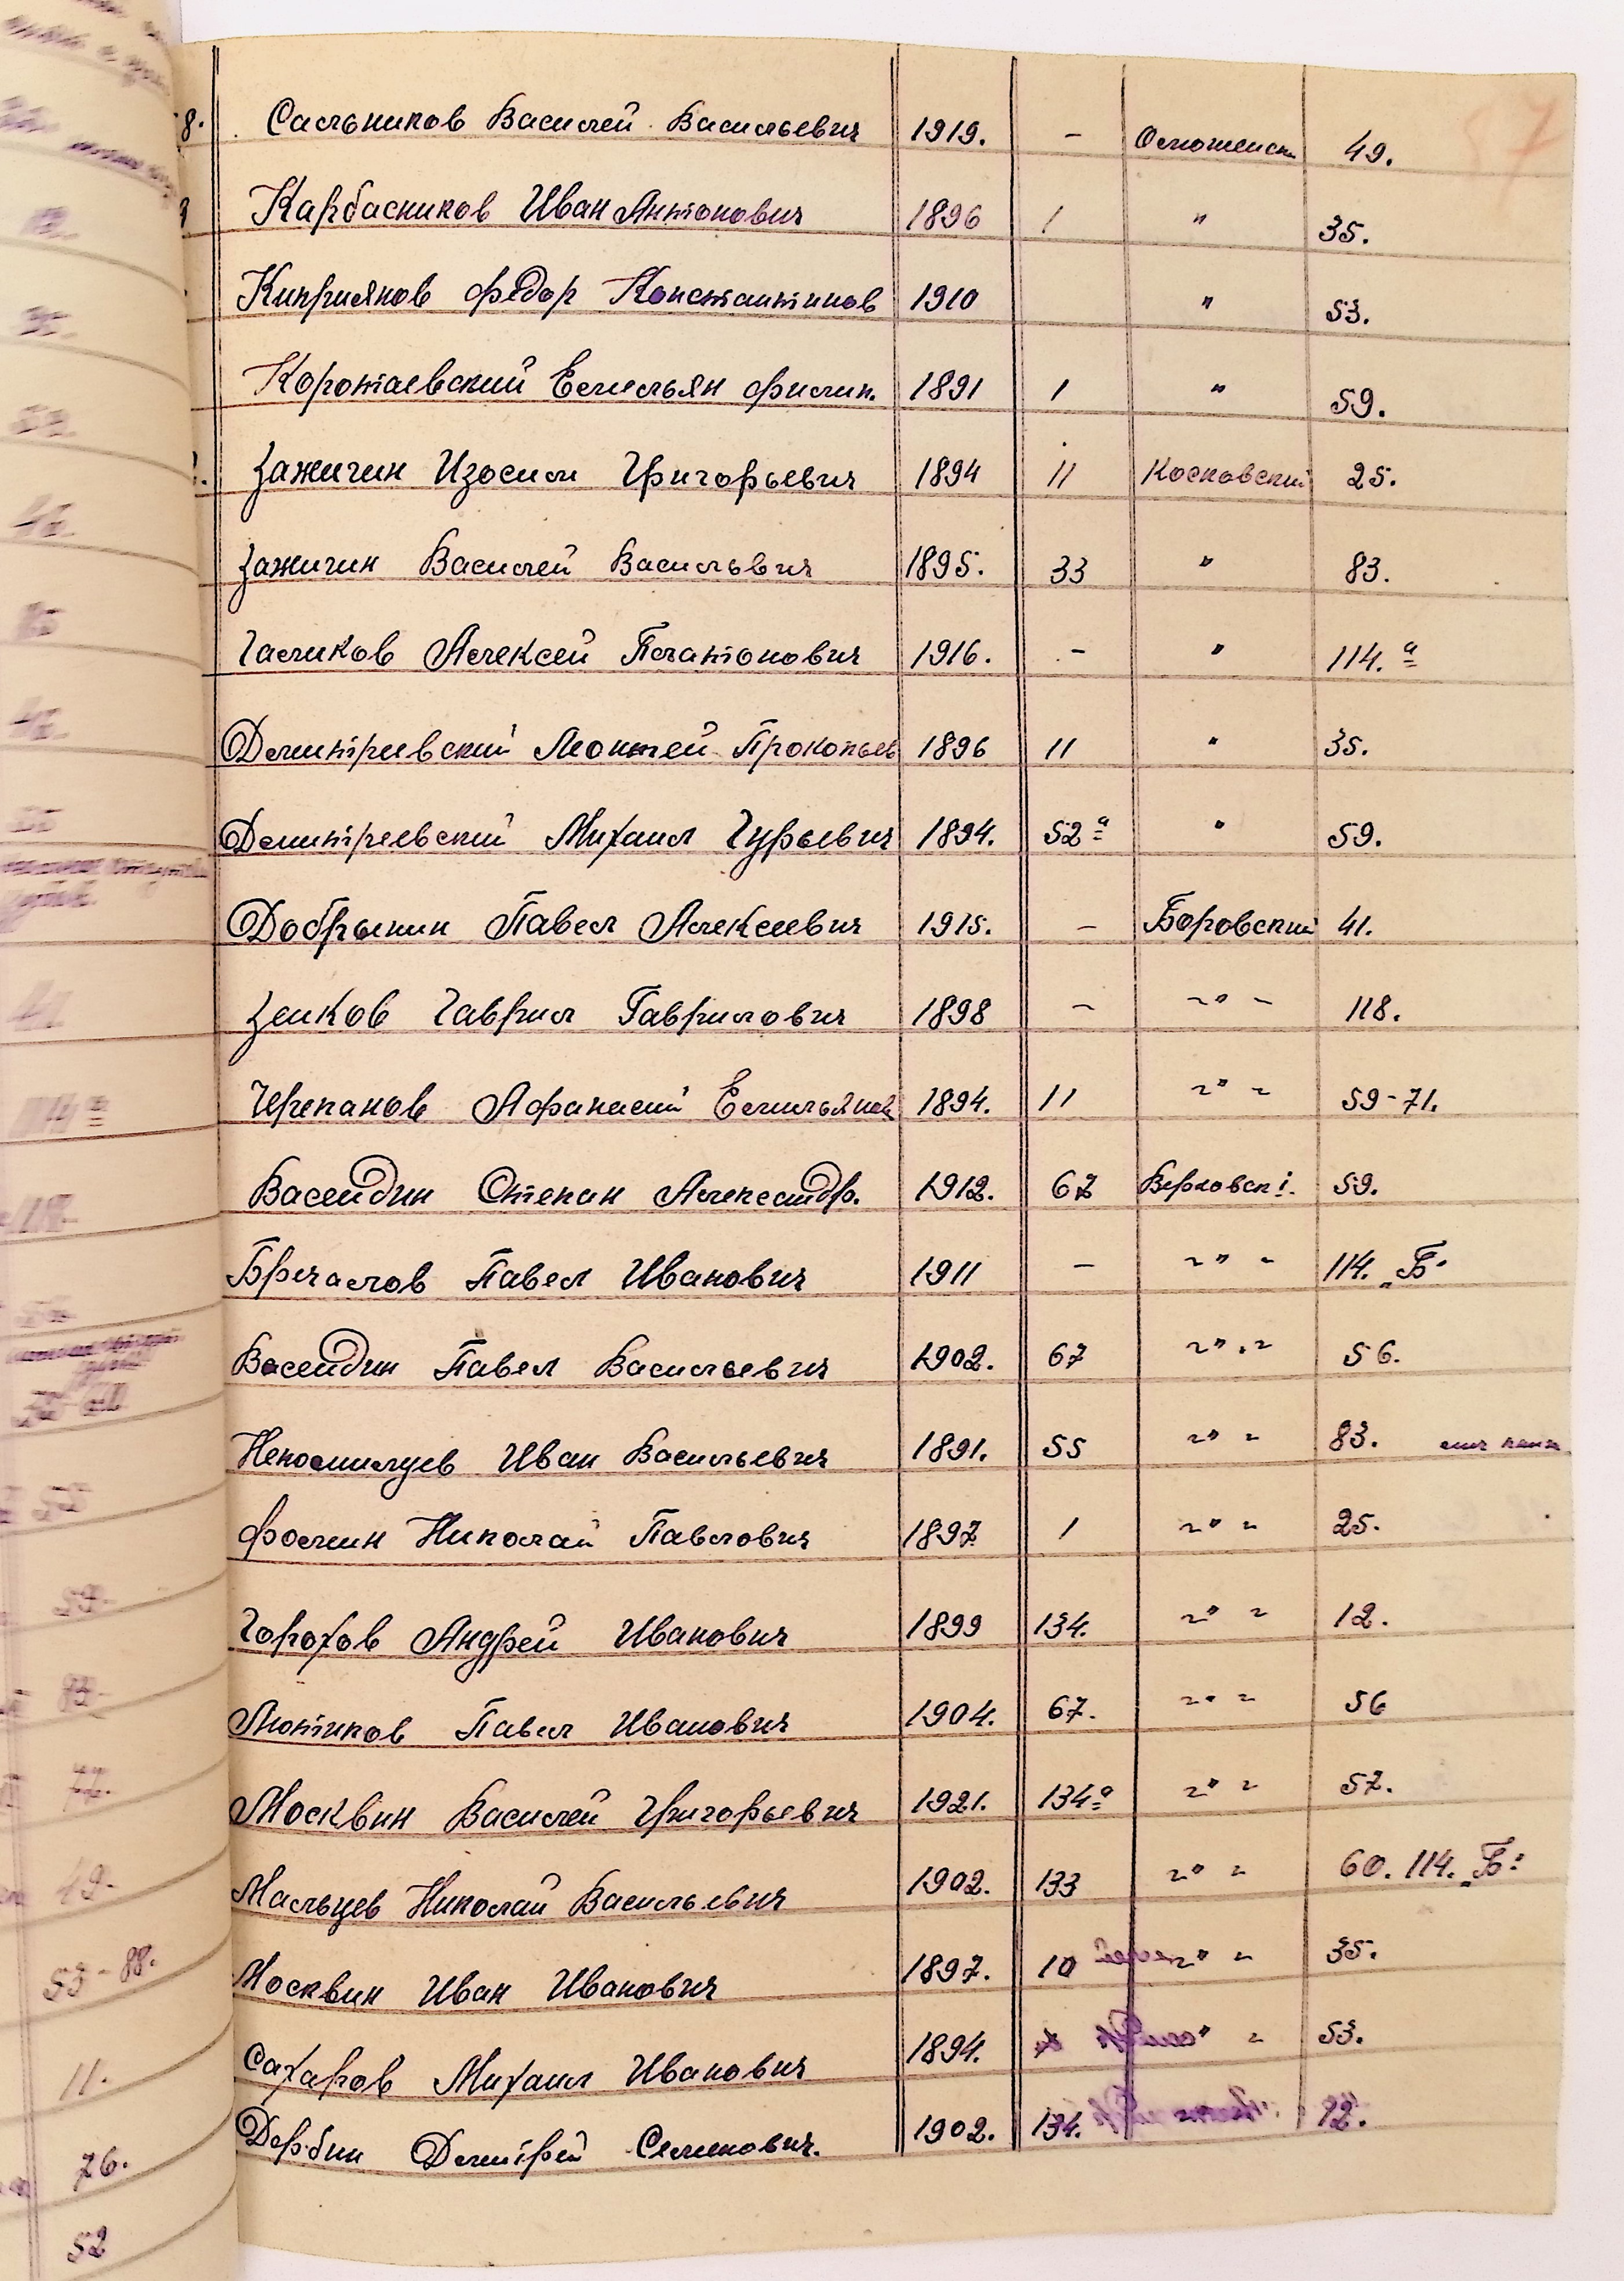 57
8. Сальников Василей Васильевич 1919. - Осиношенск 49.
9 Карбасников Иван Антонович 1896 1 " 35.
Киприянов Федор Константинов 1910 " 53.
Коротаевский Емельян Филип. 1891 1 " 59.
Зажигин Изосим Григорьевич 1894 11 Косковский 25.
Зажигин Василей Васильвич 1895. 33 " 83.
Галиков Алексей Платонович 1916. - " 114. а
Демитриевский Леонтей Прокопьев 1896 11 " 35.
Демитреевский Михаил Гурьевич 1894. 52 а " 59.
Добрынин Павел Алексеевич 1915. - Боровский 41.
Зенков Гаврил Гаврилович 1898 - -"- 118.
Черепанов Афанасий Емильянов 1894. 11 -"- 59-71.
Васендин Степан Александр. 1912. 67 Верховск і. 59.
Бречалов Павел Иванович 1911 - -"- 114. "Б"
Васендин Павел Васильевич 1902. 67 -"- 56.
Непомилуев Иван Васильевич 1891. 55 -"- 83.
Фомин Николай Павлович 1897 1 -"- 25.
Горохов Андрей Иванович 1899 134. -"- 12.
Лютиков Павел Иванович 1904. 67. -"- 56
Москвин Василей Григорьевич 1921. 134 а -"- 57.
Мальцев Николай Васильевич 1902. 133 -"- 60. 114. "Б"
Москвин Иван Иванович 1897. 10 -"- 35.
Сахаров Михаил Иванович 1894. " - 53.
Дербин Демитрей Семенович. 1902. 134. 12.
53-88.
11.
76.
52